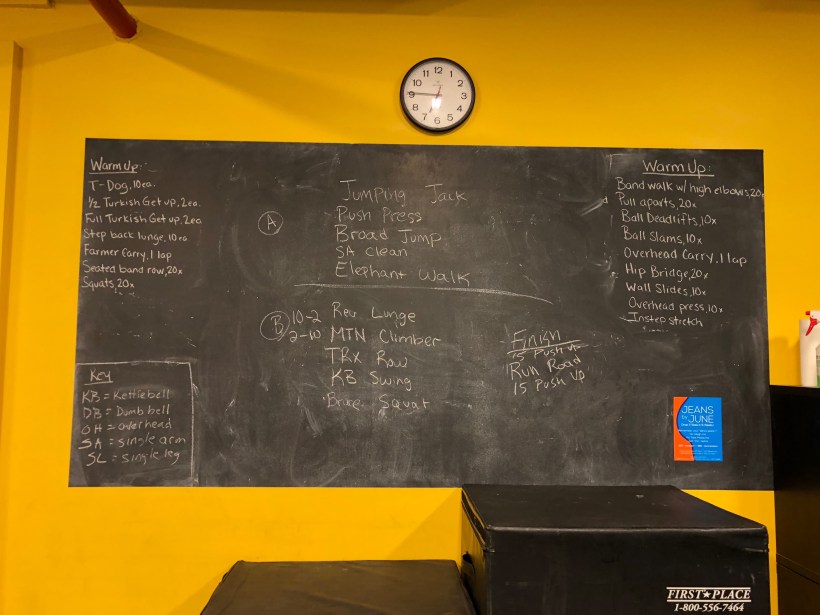 Warm Up:
T-Dog, 10ea.
1/2 Turkish Get up, 2ea.
Full Turkish Get up, 2ea
Step back lunge, 10 ea
Farmer Carry, 1 lap
Seated band row, 20x
Squats, 20x
Key
KB = Kettlebell
DB = Dumbbell
OH = overhead
SA = single arm
SL = single leg
A
Jumping Jack
Push Press
Broad Jump
SA clean
Elephant Walk
B
10-2
2-10
Rev. Lunge
MTN Climber
TRX Row
KB Swing
Squat
Finish
15 Push up
Run Road
15 Push Up
Warm Up:
Band walk w/ high elbows, 20x
Pull aparts, 20x
Ball Deadlifts, 10x
Ball Slams, 10x
Overhead Carry, 1 lap
Hip Bridge, 20x
Wall Slides, 10x
Overhead press, 10x
Instep stretch
JEANS
by
JUNE
12
1
2
3
4
5
6
7
8
9
10
11
FIRST★PLACE
1-800-556-7464